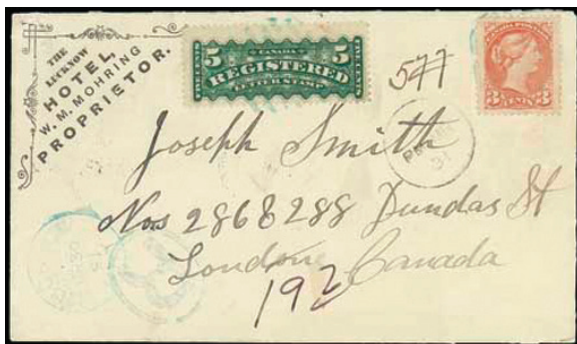 THE
LUCKNOW
HOTEL,
W. M. MOHRING
PROPRIETOR.
5 CANADA 5
FIVE CENTS REGISTERED FIVE CENTS
LETTER STAMP
CANADA POSTAGE
3 CENTS 3
577
31
Joseph Smith
Nos 286 & 288 Dundas St
London Canada
192